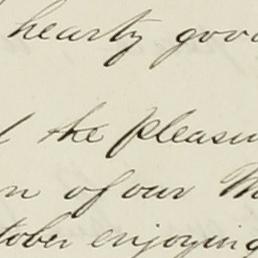 hearty good
the pleasu
n of our M
tober enjoying